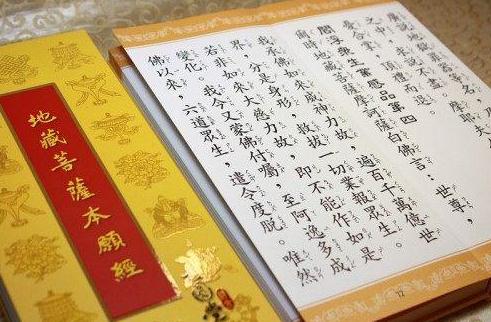 地藏菩薩本願經
廣說地獄罪器等名，
之中，求說不盡。摩耶夫
憂合掌，頂禮而退。
閻浮眾生業感品第四
爾時地藏菩薩摩訶薩白佛言：世尊，
我承佛如來威神力故，遍百千萬億世
界，分是身形，救拔一切業報眾生。
若非如來大慈力故，即不能作如是
變化。我今又蒙佛付囑，至阿逸多成
佛以來，六道眾生，遣令度脫。唯然
72